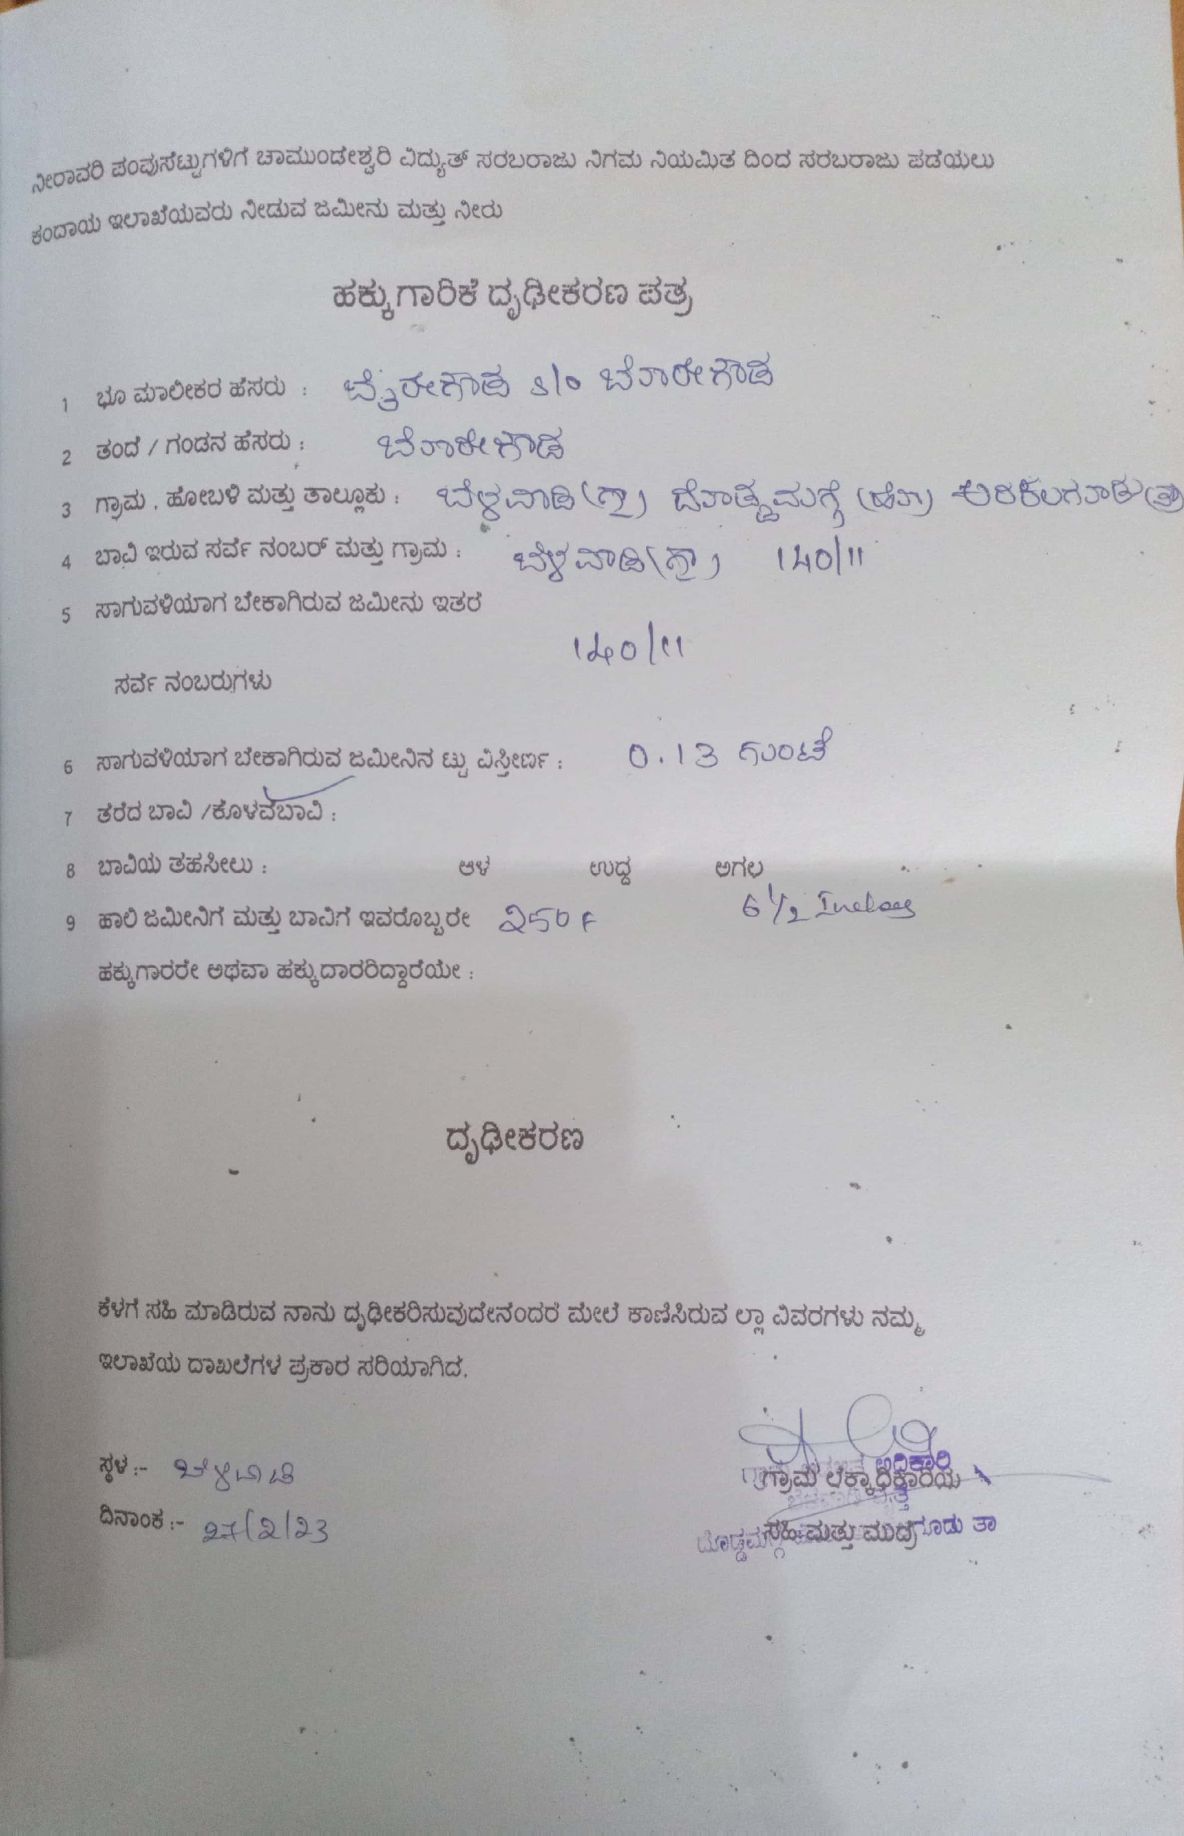 ನೀರಾವರಿ ಪಂಪುಸೆಟ್ಟುಗಳಿಗೆ ಚಾಮುಂಡೇಶ್ವರಿ ವಿದ್ಯುತ್ ಸರಬರಾಜು ನಿಗಮ ನಿಯಮಿತ ದಿಂದ ಸರಬರಾಜು ಪಡೆಯಲು
ಕಂದಾಯ ಇಲಾಖೆಯವರು ನೀಡುವ ಜಮೀನು ಮತ್ತು ನೀರು
ಹಕ್ಕುಗಾರಿಕೆ ದೃಢೀಕರಣ ಪತ್ರ
1 ಭೂ ಮಾಲೀಕರ ಹೆಸರು : ಬೈರೇಗೌಡ s/o ಬೋರೇಗೌಡ
2 ತಂದೆ / ಗಂಡನ ಹೆಸರು : ಬೋರೇಗೌಡ
3 ಗ್ರಾಮ . ಹೋಬಳಿ ಮತ್ತು ತಾಲ್ಲೂಕು : ಬೆಳವಾಡಿ(ಗ್ರಾ) ದೊಡ್ಡಮಗ್ಗೆ (ಹೋ) ಅರಕಲಗೂಡು(ತಾ)
4 ಬಾವಿ ಇರುವ ಸರ್ವೆ ನಂಬರ್ ಮತ್ತು ಗ್ರಾಮ : ಬೆಳವಾಡಿ(ಗ್ರಾ) 140/11
5 ಸಾಗುವಳಿಯಾಗ ಬೇಕಾಗಿರುವ ಜಮೀನು ಇತರ
140/11
ಸರ್ವೆ ನಂಬರುಗಳು
6 ಸಾಗುವಳಿಯಾಗ ಬೇಕಾಗಿರುವ ಜಮೀನಿನ ಟ್ಟು ವಿಸ್ತೀರ್ಣ : 0.13 ಗುಂಟೆ
7 ತೆರೆದ ಬಾವಿ /ಕೊಳವೆಬಾವಿ :
8 ಬಾವಿಯ ತಹಸೀಲು : ಆಳ ಉದ್ದ ಅಗಲ
9 ಹಾಲಿ ಜಮೀನಿಗೆ ಮತ್ತು ಬಾವಿಗೆ ಇವರೊಬ್ಬರೇ 250 F 6 1/2
ಹಕ್ಕುಗಾರರೇ ಅಥವಾ ಹಕ್ಕುದಾರರಿದ್ದಾರೆಯೇ :
ದೃಢೀಕರಣ
ಕೆಳಗೆ ಸಹಿ ಮಾಡಿರುವ ನಾನು ದೃಢೀಕರಿಸುವುದೇನಂದರೆ ಮೇಲೆ ಕಾಣಿಸಿರುವ ಲ್ಲಾ ವಿವರಗಳು ನಮ್ಮ
ಇಲಾಖೆಯ ದಾಖಲೆಗಳ ಪ್ರಕಾರ ಸರಿಯಾಗಿದೆ.
ಸ್ಥಳ :- ಬೆಳವಾಡಿ
ಅಧಿಕಾರಿ
ಗ್ರಾಮ ಲೆಕ್ಕಾಧಿಕಾರಿಯ
ದಿನಾಂಕ :- 27/2/23
ಸಹಿ ಮತ್ತು ಮುದ್ರೆ